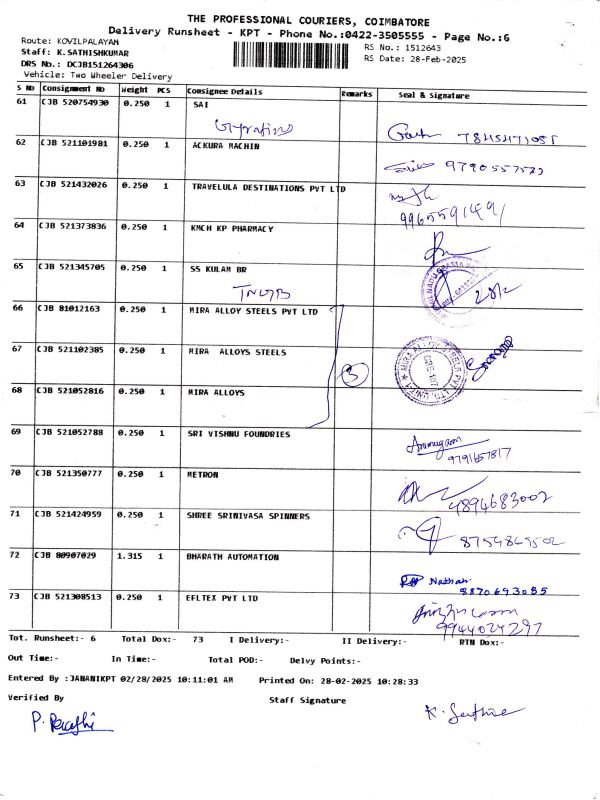 THE PROFESSIONAL COURIERS, COIMBATORE
Delivery Runsheet - KPT - Phone No.:0422-3505555 - Page No.:6
Route: KOVILPALAYAM
RS No.: 1512643
Staff: K.SATHISHKUMAR
RS Date: 28-Feb-2025
DRS No.: DCJB151264306
Vehicle: Two Wheeler Delivery
S No Consignment No Weight PCS Consignee Details Remarks Seal & Signature
61 CJB 520754930 0.250 1 SAI
7845471055
62 CJB 521101981 0.250 1 ACKURA MACHIN
63 CJB 521432026 0.250 1 TRAVELULA DESTINATIONS PVT LTD
9965591491
64 CJB 521373836 0.250 1 KMCH KP PHARMACY
65 CJB 521345705 0.250 1 SS KULAM BR
28/2
66 CJB 81012163 0.250 1 MIRA ALLOY STEELS PVT LTD
67 CJB 521102385 0.250 1 MIRA ALLOYS STEELS
3
MIRA ALLOY STEELS PVT. LTD.
68 CJB 521052816 0.250 1 MIRA ALLOYS
69 CJB 521052788 0.250 1 SRI VISHNU FOUNDRIES
Arumugam
9791657817
70 CJB 521350777 0.250 1 METRON
4894683002
71 CJB 521424959 0.250 1 SHREE SRINIVASA SPINNERS
8754869502
72 CJB 80907029 1.315 1 BHARATH AUTOMATION
Nathan
8870693085
73 CJB 521308513 0.250 1 EFLTEX PVT LTD
9944024297
Tot. Runsheet:- 6 Total Dox:- 73 I Delivery:- II Delivery:- RTN Dox:-
Out Time:- In Time:- Total POD:- Delvy Points:-
Entered By :JANANIKPT 02/28/2025 10:11:01 AM Printed On: 28-02-2025 10:28:33
Verified By Staff Signature